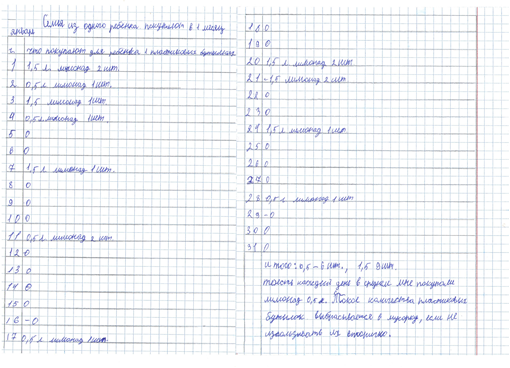 Семья из одного ребенка
в 1 месяц
январь
что покупают для ребенка в пластиковых бутылках
1 1,5 л лимонад 2 шт.
2 0,5 л лимонад 1 шт.
3 1,5 лимонад 1 шт
4 0,5 л лимонад 1 шт.
5 0
6 0
7 1,5 л лимонад 1 шт.
8 0
9 0
10 0
11 0,5 л лимонад 2 шт.
12 0
13 0
14 0
15 0
16 - 0
17 0,5 л лимонад 1 шт.
18 0
19 0
20 1,5 л лимонад 2 шт
21 - 1,5 лимонад 2 шт
22 0
23 0
24 1,5 л лимонад 1 шт.
25 0
26 0
27 0
28 0,5 л лимонад 1 шт
29 - 0
30 0
31 0
итого: 0,5 - 6 шт., 1,5 9 шт.
каждый день в среднем мне покупали
лимонад 0,5 л. Такое количества пластиковых
бутылок выбрасывается в мусор, если не
использовать их вторично.